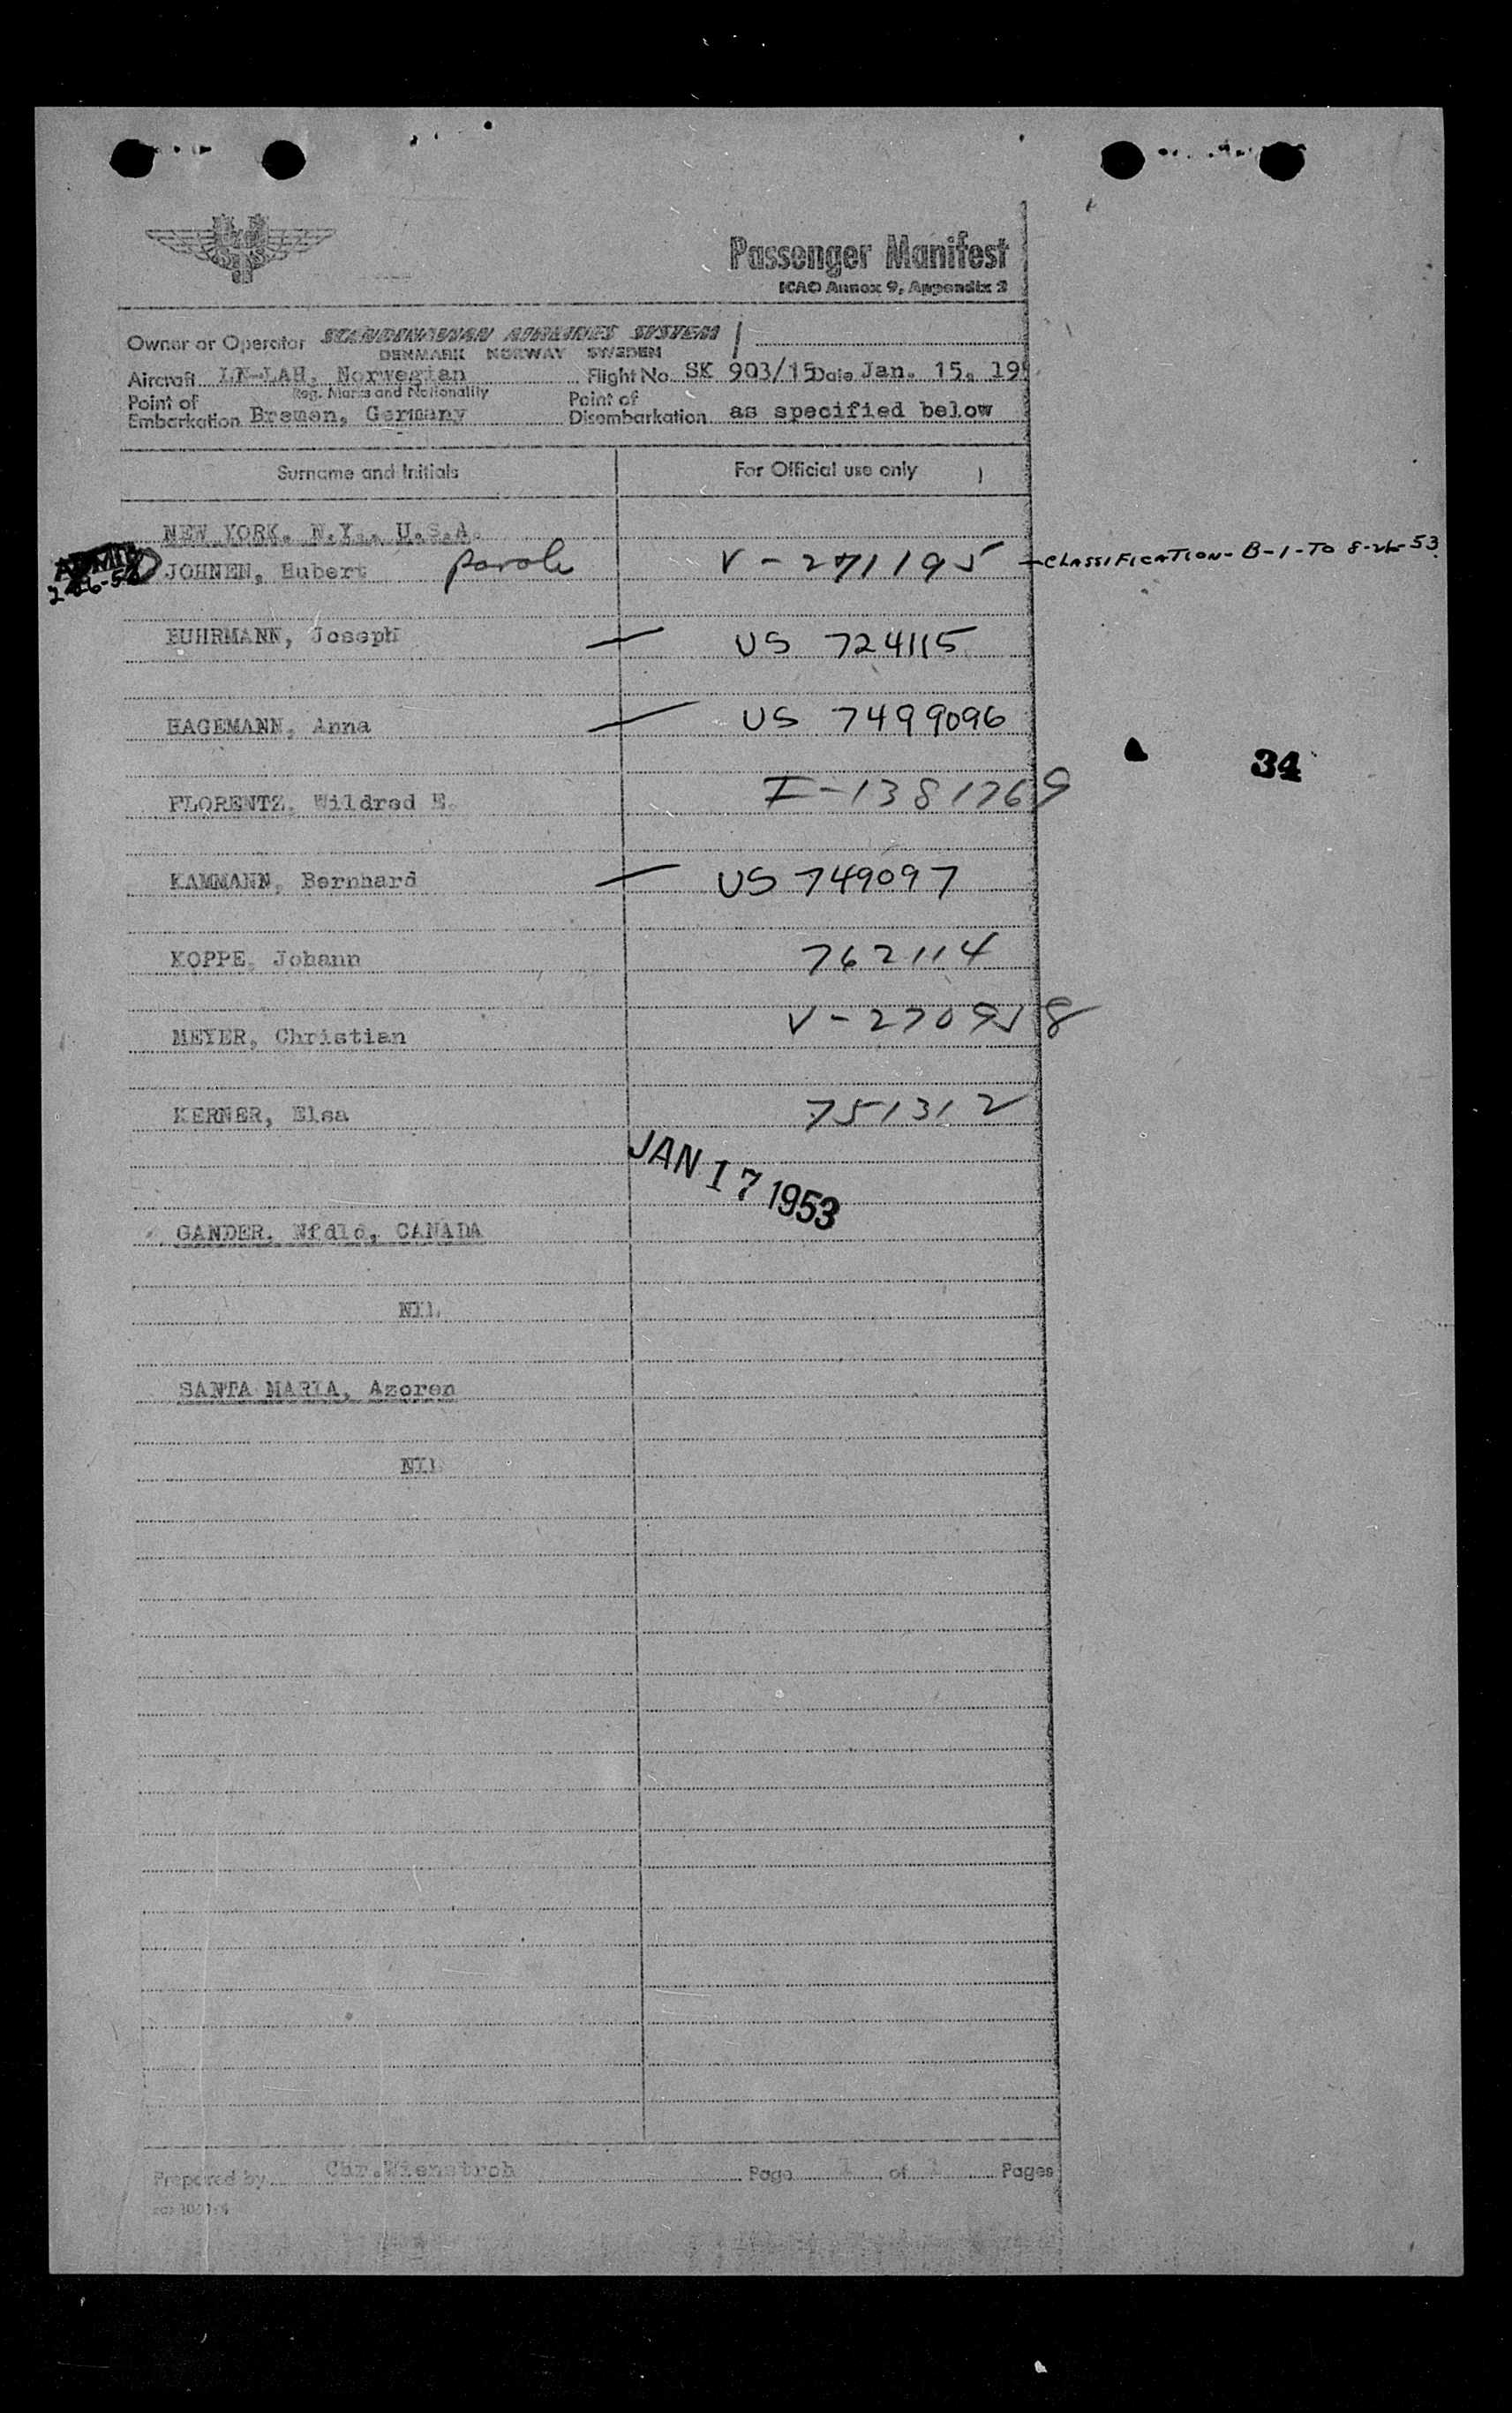 Passenger Manifest
ICAO Annex 9, Appendix 2
Owner or Operator SCANDINAVIAN AIRLINES SYSTEM
DENMARK NORWAY SWEDEN
Aircraft LN-LAH, Norwegian Flight No. SK 903/15 Date Jan. 15, 19
Reg. Marks and Nationality
Point of Embarkation Bremen, Germany Point of Disembarkation as specified below
Surname and Initials For Official use only
NEW YORK, N.Y., U.S.A.
JOHNEN, Hubert parole V-271195 - CLASSIFICATION - B-1-TO 8-26-53
BUHRMANN, Joseph — US 724115
HAGEMANN, Anna — US 7499096
FLORENTZ, Wildred E. I-1381769
34
KAMMANN, Bernhard — US 749097
KOPPE, Johann 762114
MEYER, Christian
KERNER, Elsa 751312
JAN 17 1953
GANDER, Nfdld, CANADA
NIL
SANTA MARIA, Azoren
NIL
Prepared by Chr.Wienstroh Page 1 of 1 Pages